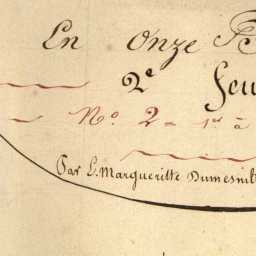 En Onze
2e
N° 2 = 1er à
Par L. Margueritte Dumesnil